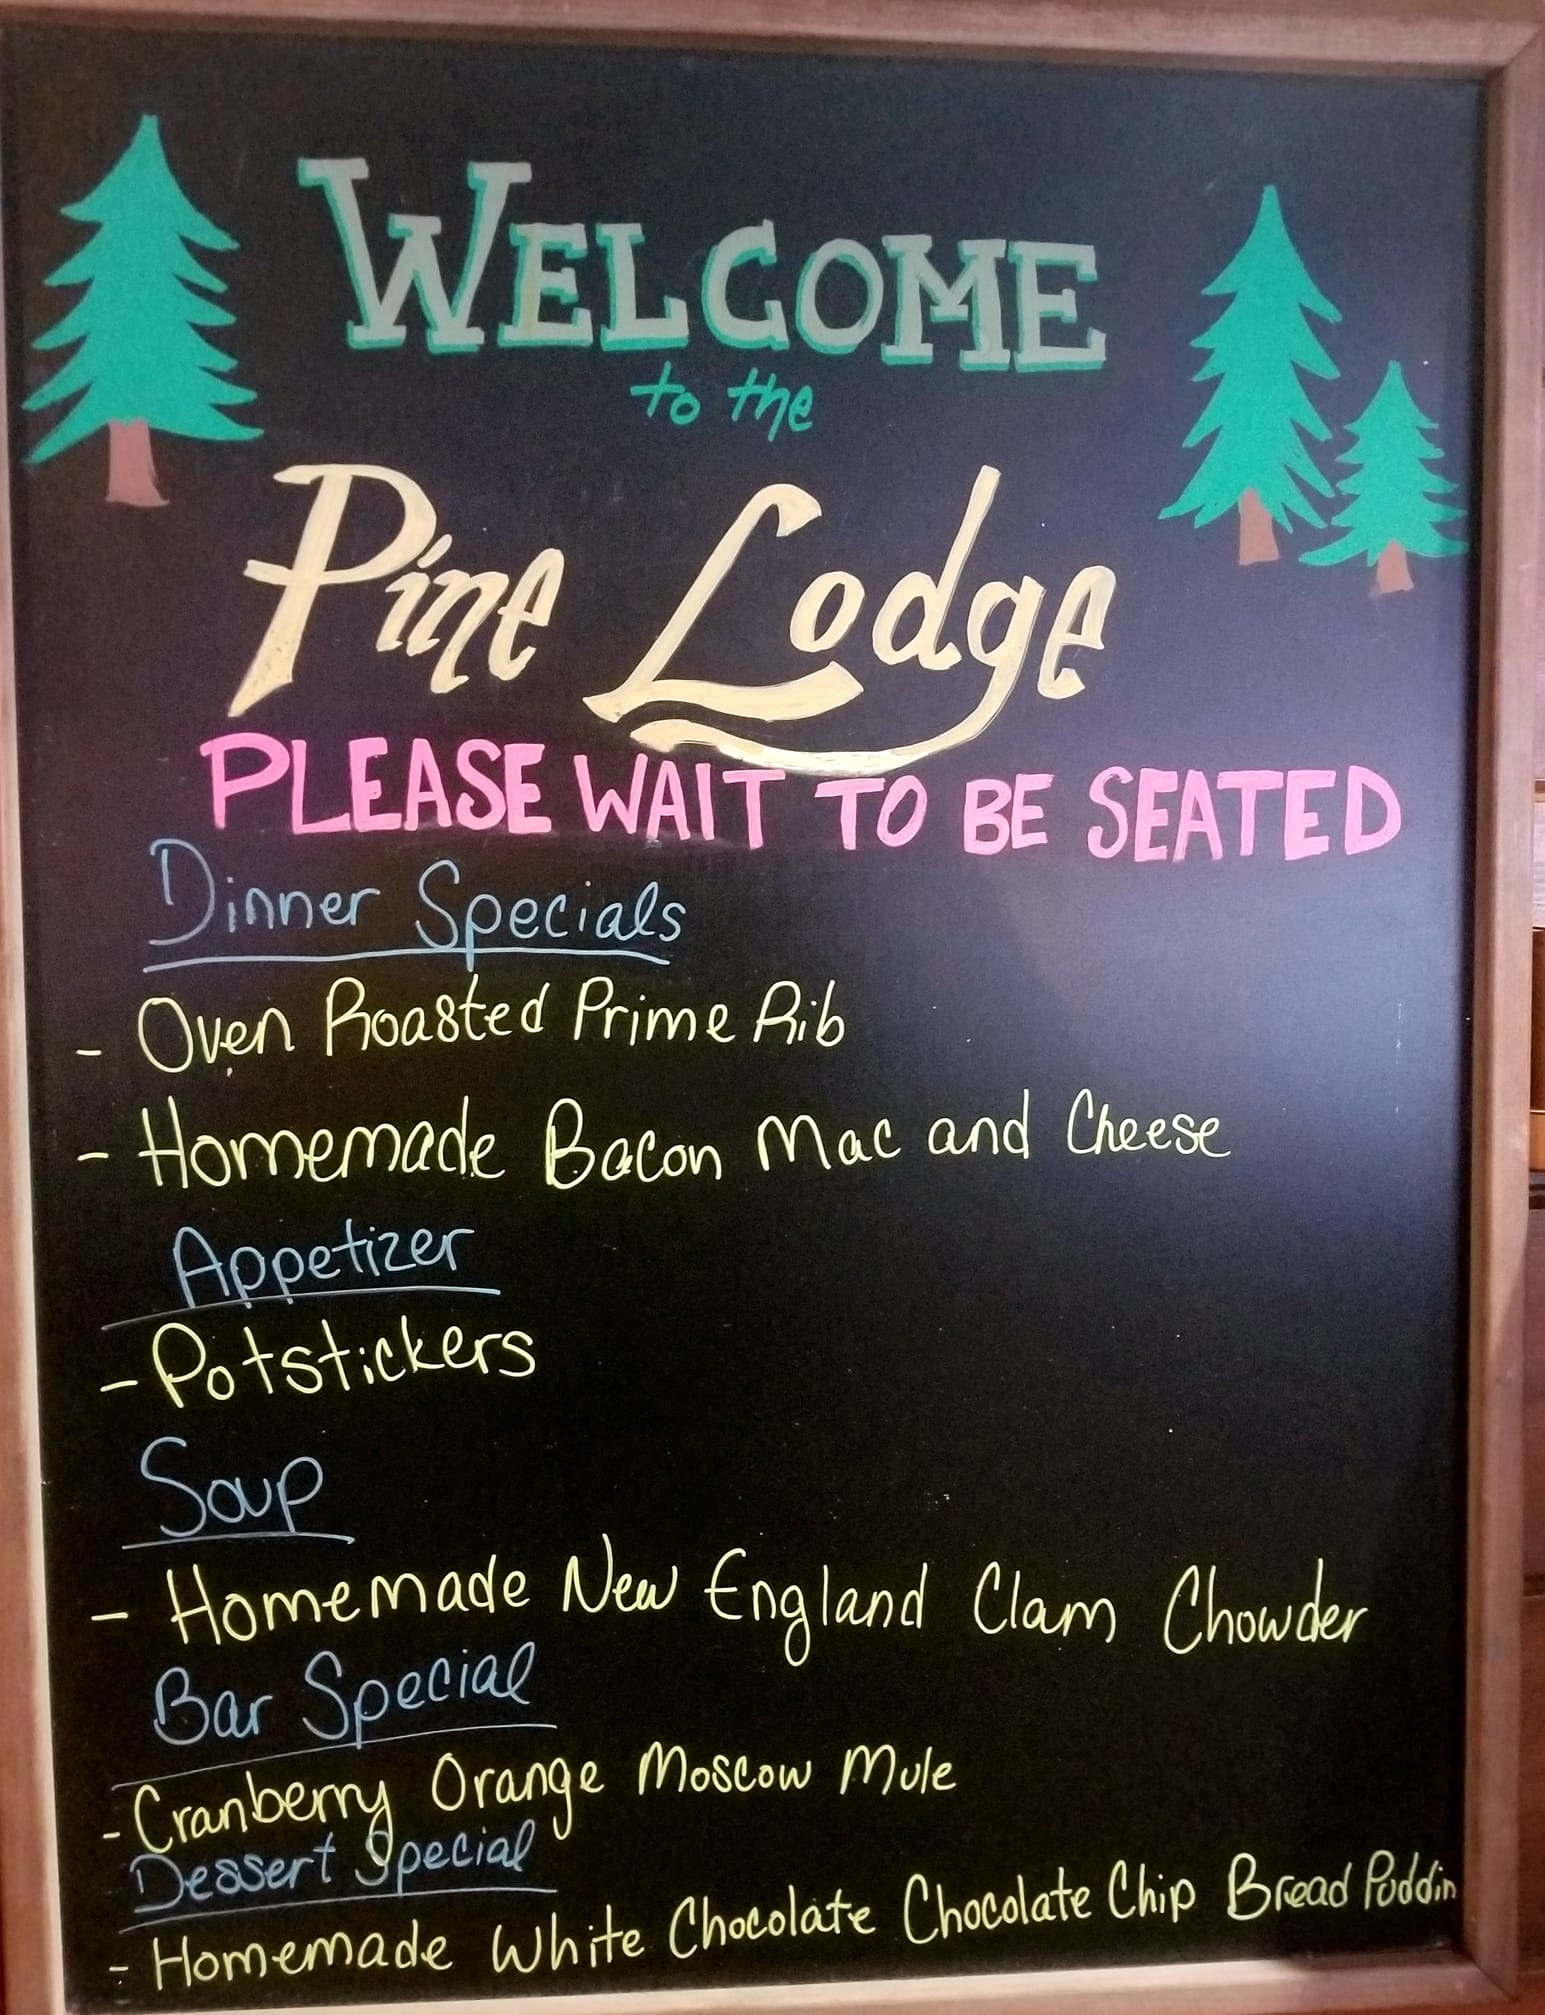 WELCOME
to the
Pine Lodge
PLEASE WAIT TO BE SEATED
Dinner Specials
- Oven Roasted Prime Rib
- Homemade Bacon Mac and Cheese
Appetizer
- Potstickers
Soup
- Homemade New England Clam Chowder
Bar Special
- Cranberry Orange Moscow Mule
Dessert Special
- Homemade White Chocolate Chocolate Chip Bread Puddin